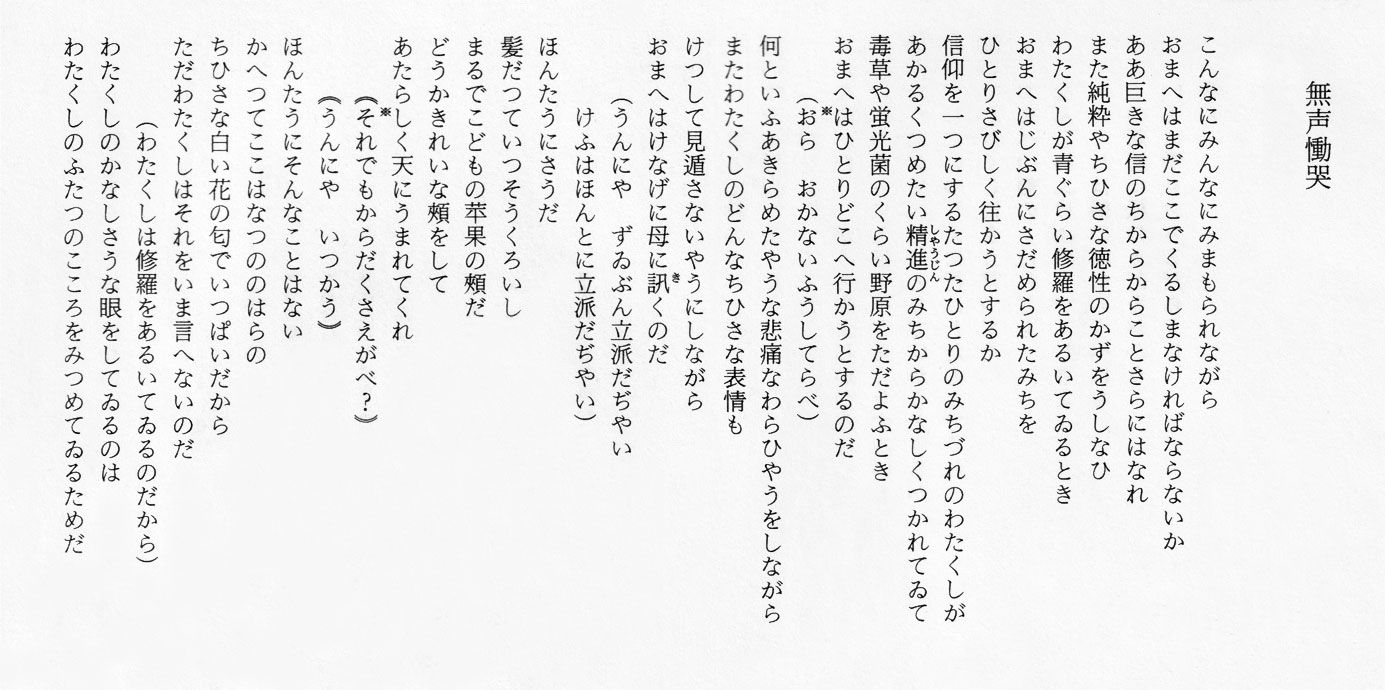 無声慟哭
こんなにみんなにみまもられながら
おまへはまだここでくるしまなければならないか
ああ巨きな信のちからからことさらにはなれ
また純粋やちひさな徳性のかずをうしなひ
わたくしが青ぐらい修羅をあるいてゐるとき
おまへはじぶんにさだめられたみちを
ひとりさびしく往かうとするか
信仰を一つにするたつたひとりのみちづれのわたくしが
あかるくつめたい精進のみちからかなしくつかれてゐて
しやうじん
毒草や蛍光菌のくらい野原をただよふとき
おまへはひとりどこへ行かうとするのだ
※
（おら　おかないふうしてらべ）
何といふあきらめたやうな悲痛なわらひやうをしながら
またわたくしのどんなちひさな表情も
けつして見遁さないやうにしながら
おまへはけなげに母に訊くのだ
き
（うんにや　ずゐぶん立派だぢやい
けふはほんとに立派だぢやい）
ほんたうにさうだ
髪だつていつそうくろいし
まるでこどもの苹果の頰だ
どうかきれいな頰をして
あたらしく天にうまれてくれ
※
《それでもからだくさえがべ？》
《うんにや　いつかう》
ほんたうにそんなことはない
かへつてここはなつののはらの
ちひさな白い花の匂でいつぱいだから
ただわたくしはそれをいま言へないのだ
（わたくしは修羅をあるいてゐるのだから）
わたくしのかなしさうな眼をしてゐるのは
わたくしのふたつのこころをみつめてゐるためだ